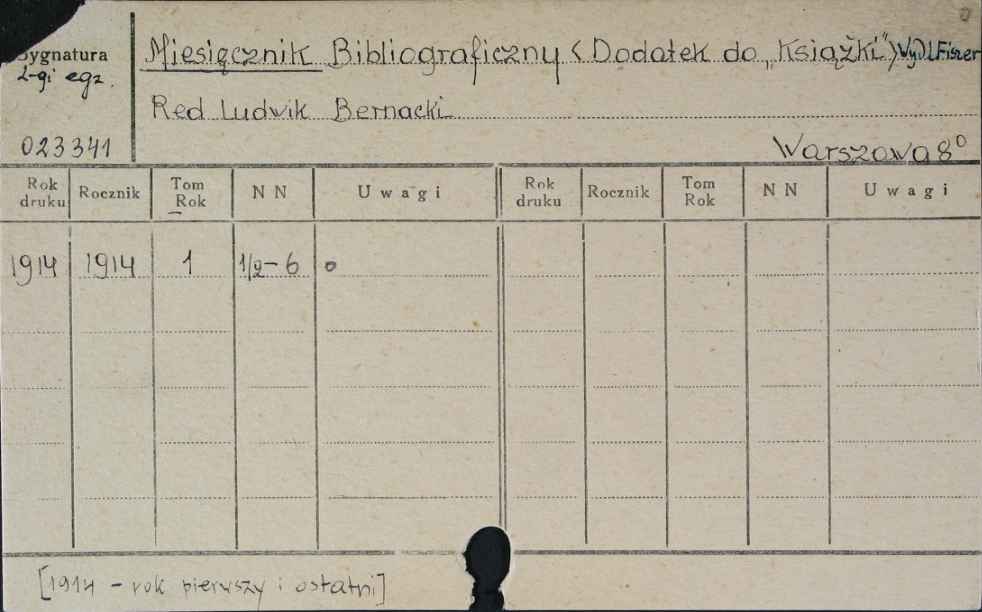 Sygnatura
2-gi egz.
023341
Miesięcznik Bibliograficzny (Dodatek do „Książki”) Wyd L Fiszer
Red Ludwik Bernacki
Warszawa 8°
Rok druku Rocznik Tom Rok N N Uwagi Rok druku Rocznik Tom Rok N N Uwagi
1914 1914 1 1/2-6 o
[1914 - rok pierwszy i ostatni]